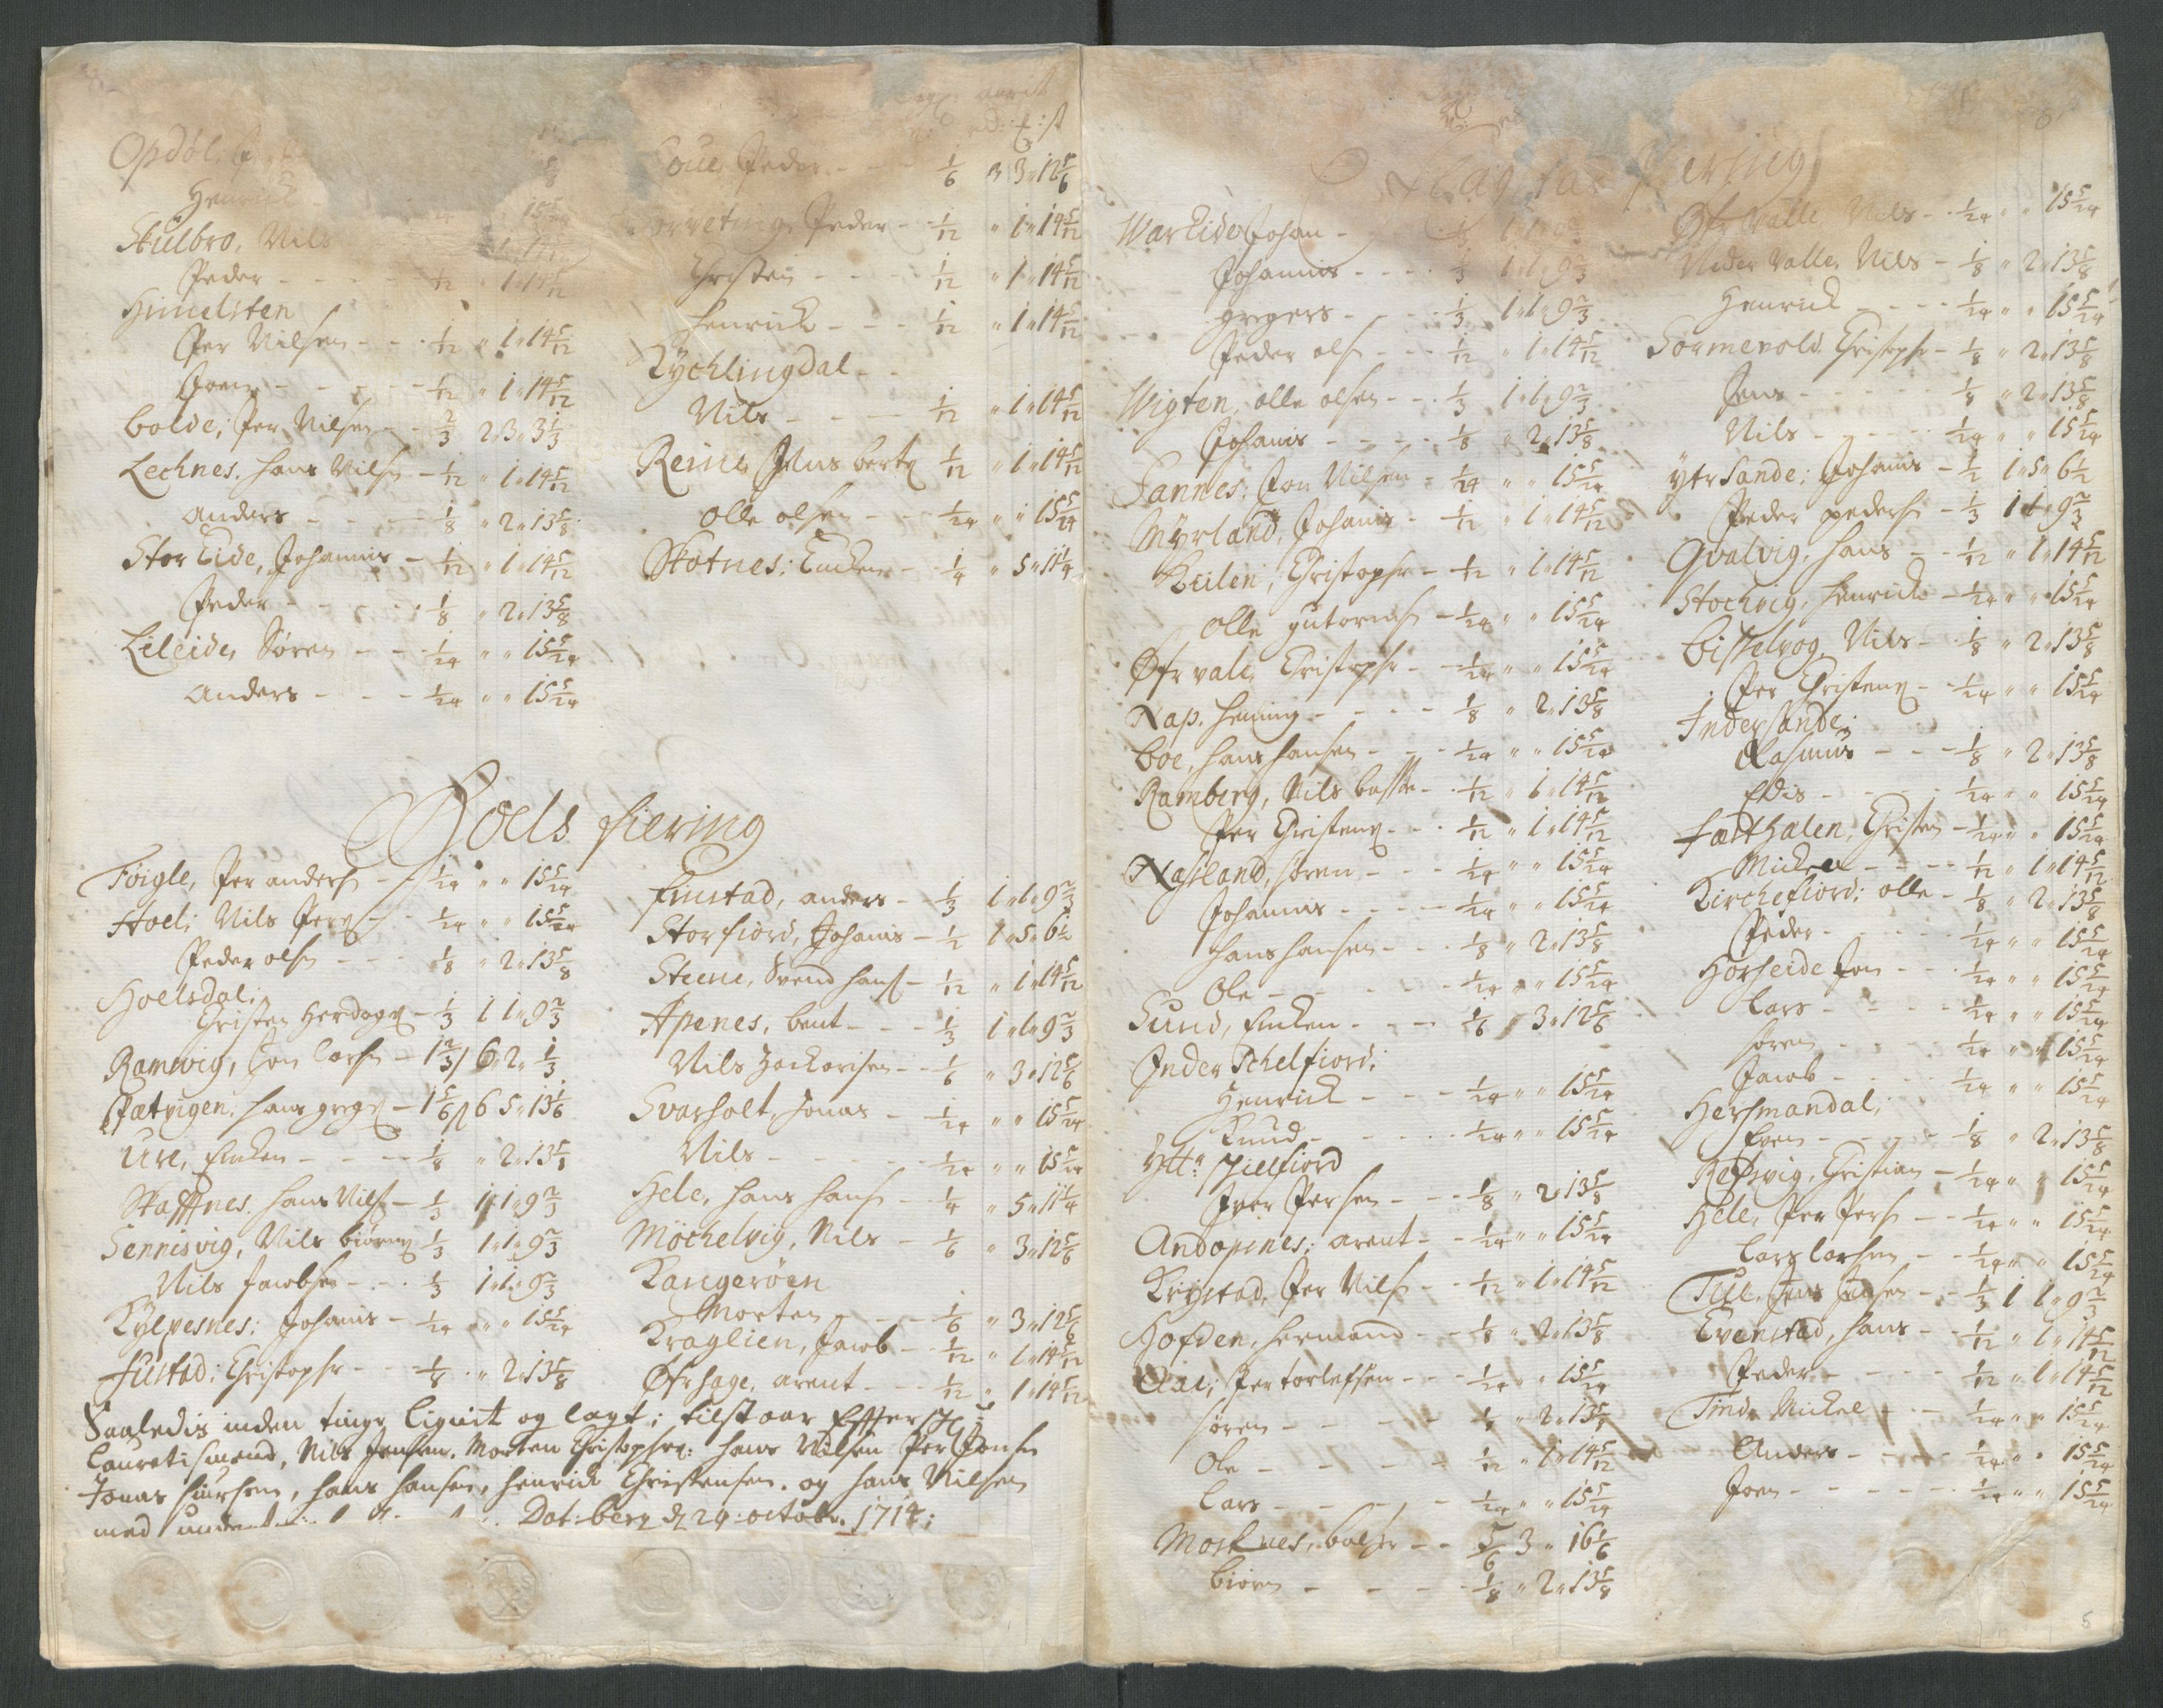 Opdøl:
Henrich
Skulbro, Nils
Peder - - - 1/12 " 1 " 14 5/12
Himelsten
Per Nilsen - - 1/12 " 1 " 14 5/12
Joen - - - - 1/12 " 1 " 14 5/12
bolde; Per Nilsen - 2/3 2 " 3 " 3 1/3
Lechnes. hans Nilss - 1/12 " 1 " 14 5/12
anders - - - 1/8 " 2 " 13 5/8
Stor Eide, Johannis - 1/12 " 1 " 14 5/12
Peder - - - 1/8 " 2 " 13 5/8
Lileide, Søren - - 1/24 " " 15 5/24
anders - - - 1/24 " " 15 5/24
oue, Peder - - 1/6 " 3 " 12 5/6
Peder - - 1/12 " 1 " 14 5/12
Christen - - - 1/12 " 1 " 14 5/12
henrich - - - 1/12 " 1 " 14 5/12
Kychlingdal - -
Nils - - - 1/12 " 1 " 14 5/12
Reine, Jens 1/12 " 1 " 14 5/12
olle olsen - - 1/24 " " 15 5/24
Skotnes: - 1/4 " 5 " 11 1/4
Boels fiering
Føigle, Per anders - - 1/24 " " 15 5/24
Hoel; Nils Pers - 1/24 " " 15 5/24
Peder olsen - - 1/8 " 2 " 13 5/8
Hoelsdal;
Christen Herdags - 1/3 1 1 " 9 2/3
Ramsvig, Jon larsen - 1 2/3 / 6 " 2 " 1/3
Pætvigen. hans greg - 1 5/6 / 6 5 " 13 1/6
Ure, Enken - - - 1/8 " 2 " 13 5/8
Skaffnes. hans Nilss - 1/3 1 " 1 " 9 2/3
Sennisvig, Nils biørns 1/3 1 " 1 " 9 2/3
Nils Jacobsen - - 1/3 1 " 1 " 9 2/3
Kylpesnes: Johanis - 1/24 " " 15 5/24
Fustad: Christopher - - 1/8 " 2 " 13 5/8
finstad, anders - - 1/3 1 " 1 " 9 2/3
Storfiord, Johanis - 1/2 1 " 5 " 6 1/2
Steene, Svend hans - 1/12 " 1 " 14 5/12
Apenes, bent - - - 1/3 1 " 1 " 9 2/3
Nils Zackarisen - - 1/6 " 3 " 12 5/6
Svarholt, Jonas - 1/24 " " 15 5/24
Nils - - - - 1/24 " " 15 5/24
Hele, hans hans - 1/4 " 5 " 11 1/4
Möchelvig, Nils - 1/6 " 3 " 12 5/6
Kangerøen
Morten - - - 1/6 " 3 " 12 5/6
Kraglien, Jacob - - 1/12 " 1 " 14 5/12
Øfrhage, arent - - 1/12 " 1 " 14 5/12
Saaledis inden tinge lignit og lagt; tilstaar Effter
laurettismend, Nils Jensen. Morten Christophers: hans Nilsen Per Jonsen
Jonas Siursen, hans hansen, henrich Christensen. og hans Nilsen
med Dat: berg d 24: octobr. 1714;
fiering
War Eide, Johan -
Johannis - - - 1/3 1 " 1 " 9 2/3
gregers - - - 1/3 1 " 1 " 9 2/3
Peder olsen - - 1/12 " 1 " 14 5/12
Wigten, olle olsen - - 1/3 1 " 1 " 9 2/3
Johanis - - - 1/8 " 2 " 13 5/8
Sannes: Jon Nilsen - 1/24 " " 15 5/24
Myrland, Johanis - 1/12 " 1 " 14 5/12
Kulen; Christopher - 1/12 " 1 " 14 5/12
olle gutormsen - 1/24 " " 15 5/24
Øfr vale, Christopher - 1/24 " " 15 5/24
Nap. hening - - - 1/8 " 2 " 13 5/8
boe, hans hansen - - 1/24 " " 15 5/24
Ramberg, Nils - 1/12 " 1 " 14 5/12
Per Christens - - 1/12 " 1 " 14 5/12
Nasland, søren - - - 1/24 " " 15 5/24
Johannis - - - 1/24 " " 15 5/24
hans hansen - - - 1/8 " 2 " 13 5/8
Ole - - - - 1/24 " " 15 5/24
Sund, Enken - - - 1/6 3 " 12 5/6
Inder Schelfiord:
Henrich - - - 1/24 " " 15 5/24
Knud - - - - 1/24 " " 15 5/24
Ytt: skielfiord
Iver Persen - - - 1/8 " 2 " 13 5/8
Andopenes: arent - - 1/24 " " 15 5/24
Krystad, Per Nilss - - 1/12 " 1 " 14 5/12
Hofden, hermand - - 1/8 " 2 " 13 5/8
Aae; Per torlefsen - - - 1/24 " " 15 5/24
søren - - - - 1/8 " 2 " 13 5/8
Ole - - - - - 1/12 " 1 " 14 5/12
Lars - - - - 1/24 " " 15 5/24
Mosknes, - - 5/6 3 " 16 1/6
biørn - - - - 1/8 " 2 " 13 5/8
Øfr Valle Nils - - 1/24 " " 15 5/24
Neder Valle, Nils - 1/8 " 2 " 13 5/8
Henrich - - - 1/24 " " 15 5/24
Sørmevold. Christopher - 1/8 " 2 " 13 5/8
Jens - - - - 1/8 " 2 " 13 5/8
Nils - - - - 1/24 " " 15 5/24
ytr Sande; Johanis - 1/2 1 " 5 " 6 1/2
Peder peders - 1/3 1 1 " 9 2/3
Qvalvig, hans - - 1/12 " 1 " 14 5/12
Stochvig, henrich - 1/24 " " 15 5/24
Nils - 1/8 " 2 " 13 5/8
Per Christens - - 1/24 " " 15 5/24
Indersande;
Rasmus - - - 1/8 " 2 " 13 5/8
Elias - - - - 1/24 " " 15 5/24
Christen - 1/24 " " 15 5/24
Mickel - - - 1/12 " 1 " 14 5/12
Kirchefiord: olle - 1/8 " 2 " 13 5/8
Peder - - - - 1/24 " " 15 5/24
Horseide Jon - - - 1/24 " " 15 5/24
Lars - - - - 1/24 " " 15 5/24
søren - - - - 1/24 " " 15 5/24
Jacob - - - - 1/24 " " 15 5/24
Hersmandal;
Even - - - - 1/8 " 2 " 13 5/8
Refsvig, Christian - 1/24 " " 15 5/24
Hele, Per Pers - - 1/24 " " 15 5/24
Lars larsen - - 1/24 " " 15 5/24
Tuu, Jens Jensen - - 1/3 1 1 " 9 2/3
Evenstad, hans - - 1/12 " 1 " 14 5/12
Peder - - - - 1/12 " 1 " 14 5/12
Tind, Mickel - - 1/24 " " 15 5/24
Anders - - - - 1/24 " " 15 5/24
Joen - - - - - 1/24 " " 15 5/24
5